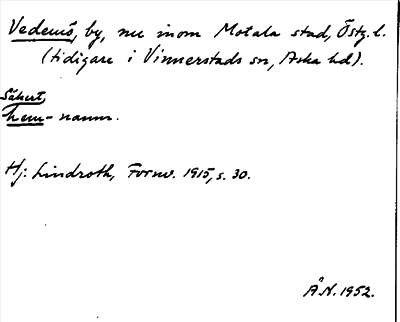 Vedemö, by, nu inom Motala stad, Östg. l.
(tidigare i Vinnerstads sn, Aska hd).
Säkert
hem- namn.
Hj. Lindroth, Fornv. 1915, s. 30.
Å N. 1952.